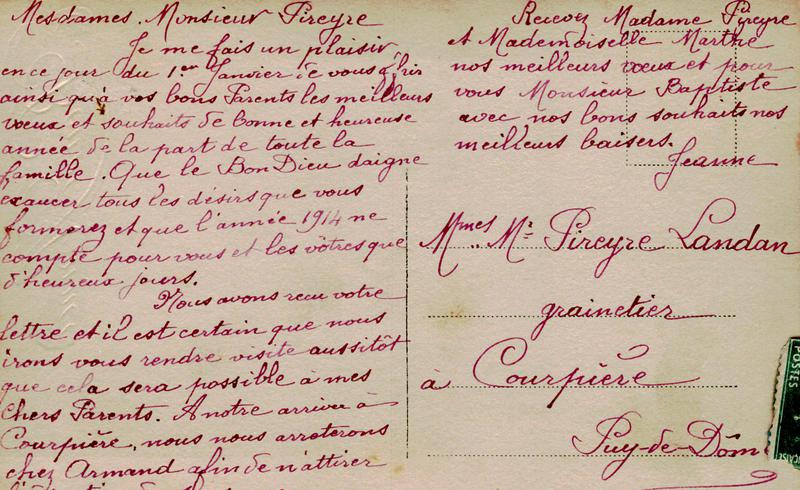 Mesdames. Monsieur Pireyre
Je me fais un plaisir
en ce jour du 1er Janvier de vous offrir
ainsi qu'à vos bons Parents les meilleurs
vœux et souhaits de bonne et heureuse
année de la part de toute la
famille. Que le Bon Dieu daigne
exaucer tous les désirs que vous
formerez et que l'année 1914 ne
compte pour vous et les vôtres que
d'heureux jours.
Nous avons reçu votre
lettre et il est certain que nous
irons vous rendre visite aussitôt
que cela sera possible à mes
Chers Parents. A notre arrivée à
Courpière, nous nous arreterons
chez Armand afin de n'attirer
Recevez Madame Pireyre
et Mademoiselle Marthe
nos meilleurs vœux et pour
vous Monsieur Baptiste
avec nos bons souhaits nos
meilleurs baisers.
Jeanne
Mmes.. Mr Pireyre Landan
grainetier
à Courpière
Puy-de-Dôm
POSTES